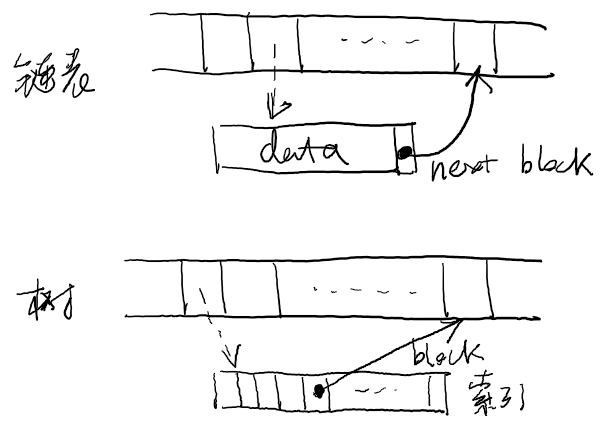 链表
data
next block
树
block
索引